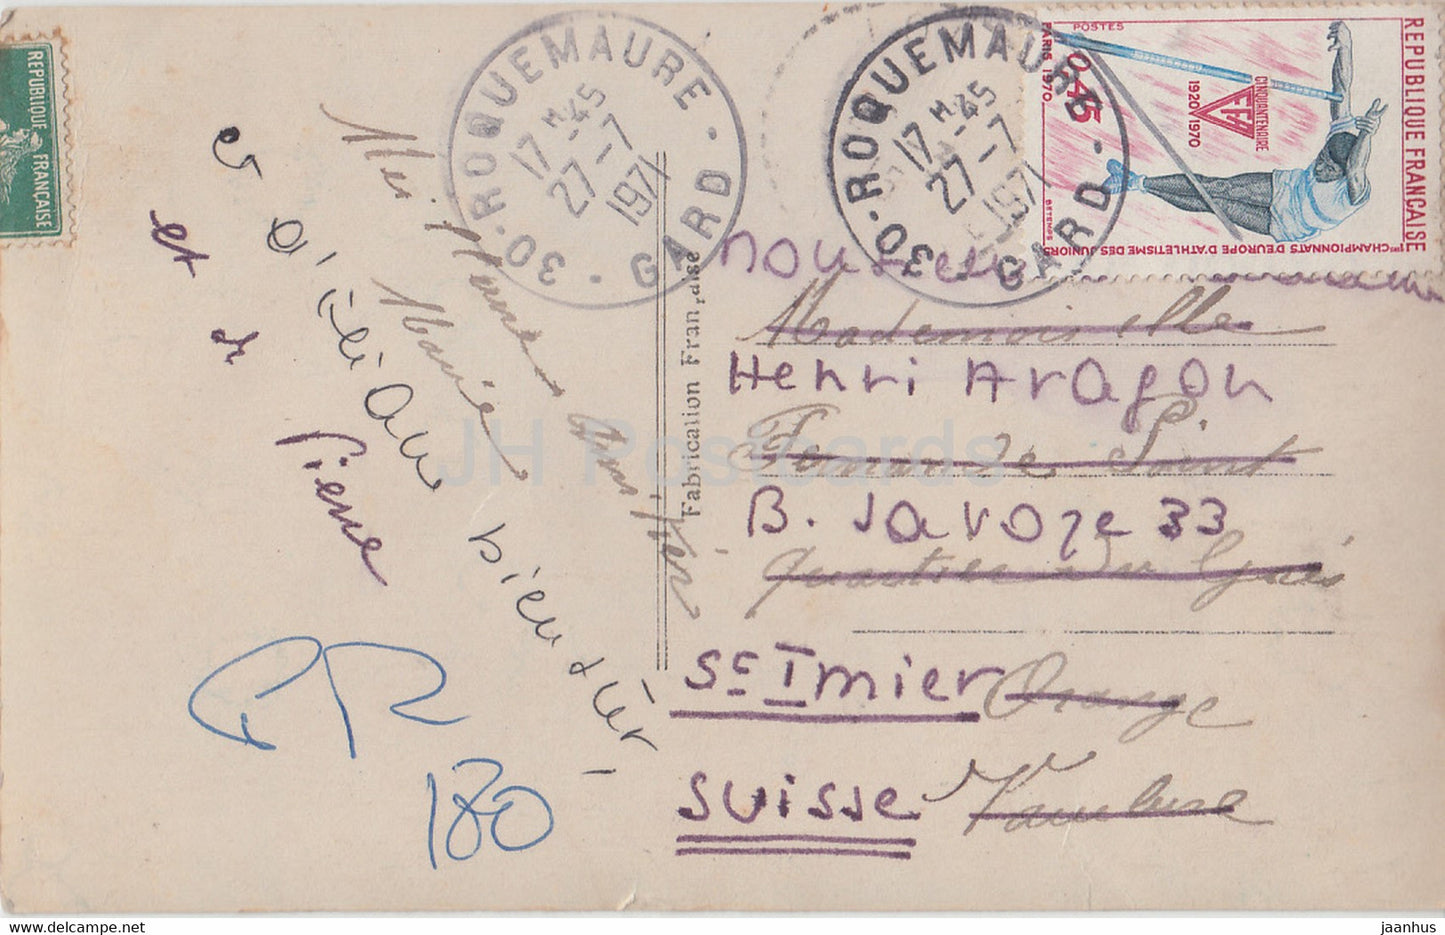 REPUBLIQUE FRANÇAISE
30-ROQUEMAURE
GARD
17 H 45
27-7
1971
30-ROQUEMAURE
GARD
17 H 45
27-7
1971
POSTES
0,45
PARIS 1970
REPUBLIQUE FRANÇAISE
CINQUANTENAIRE
FFA
1920 1970
BETEMPS
1ers CHAMPIONNATS D'EUROPE D'ATHLETISME DES JUNIORS
et d'éliane bientôt
et
Pierre
Marie
Fabrication Française
Mademoiselle
Henri Aragon
Fernande
B. Savoye 33
Quartier du
St Imier
Orange
SUISSE
Vaucluse
180
JH Postcards
www.delcampe.net
jaanhus